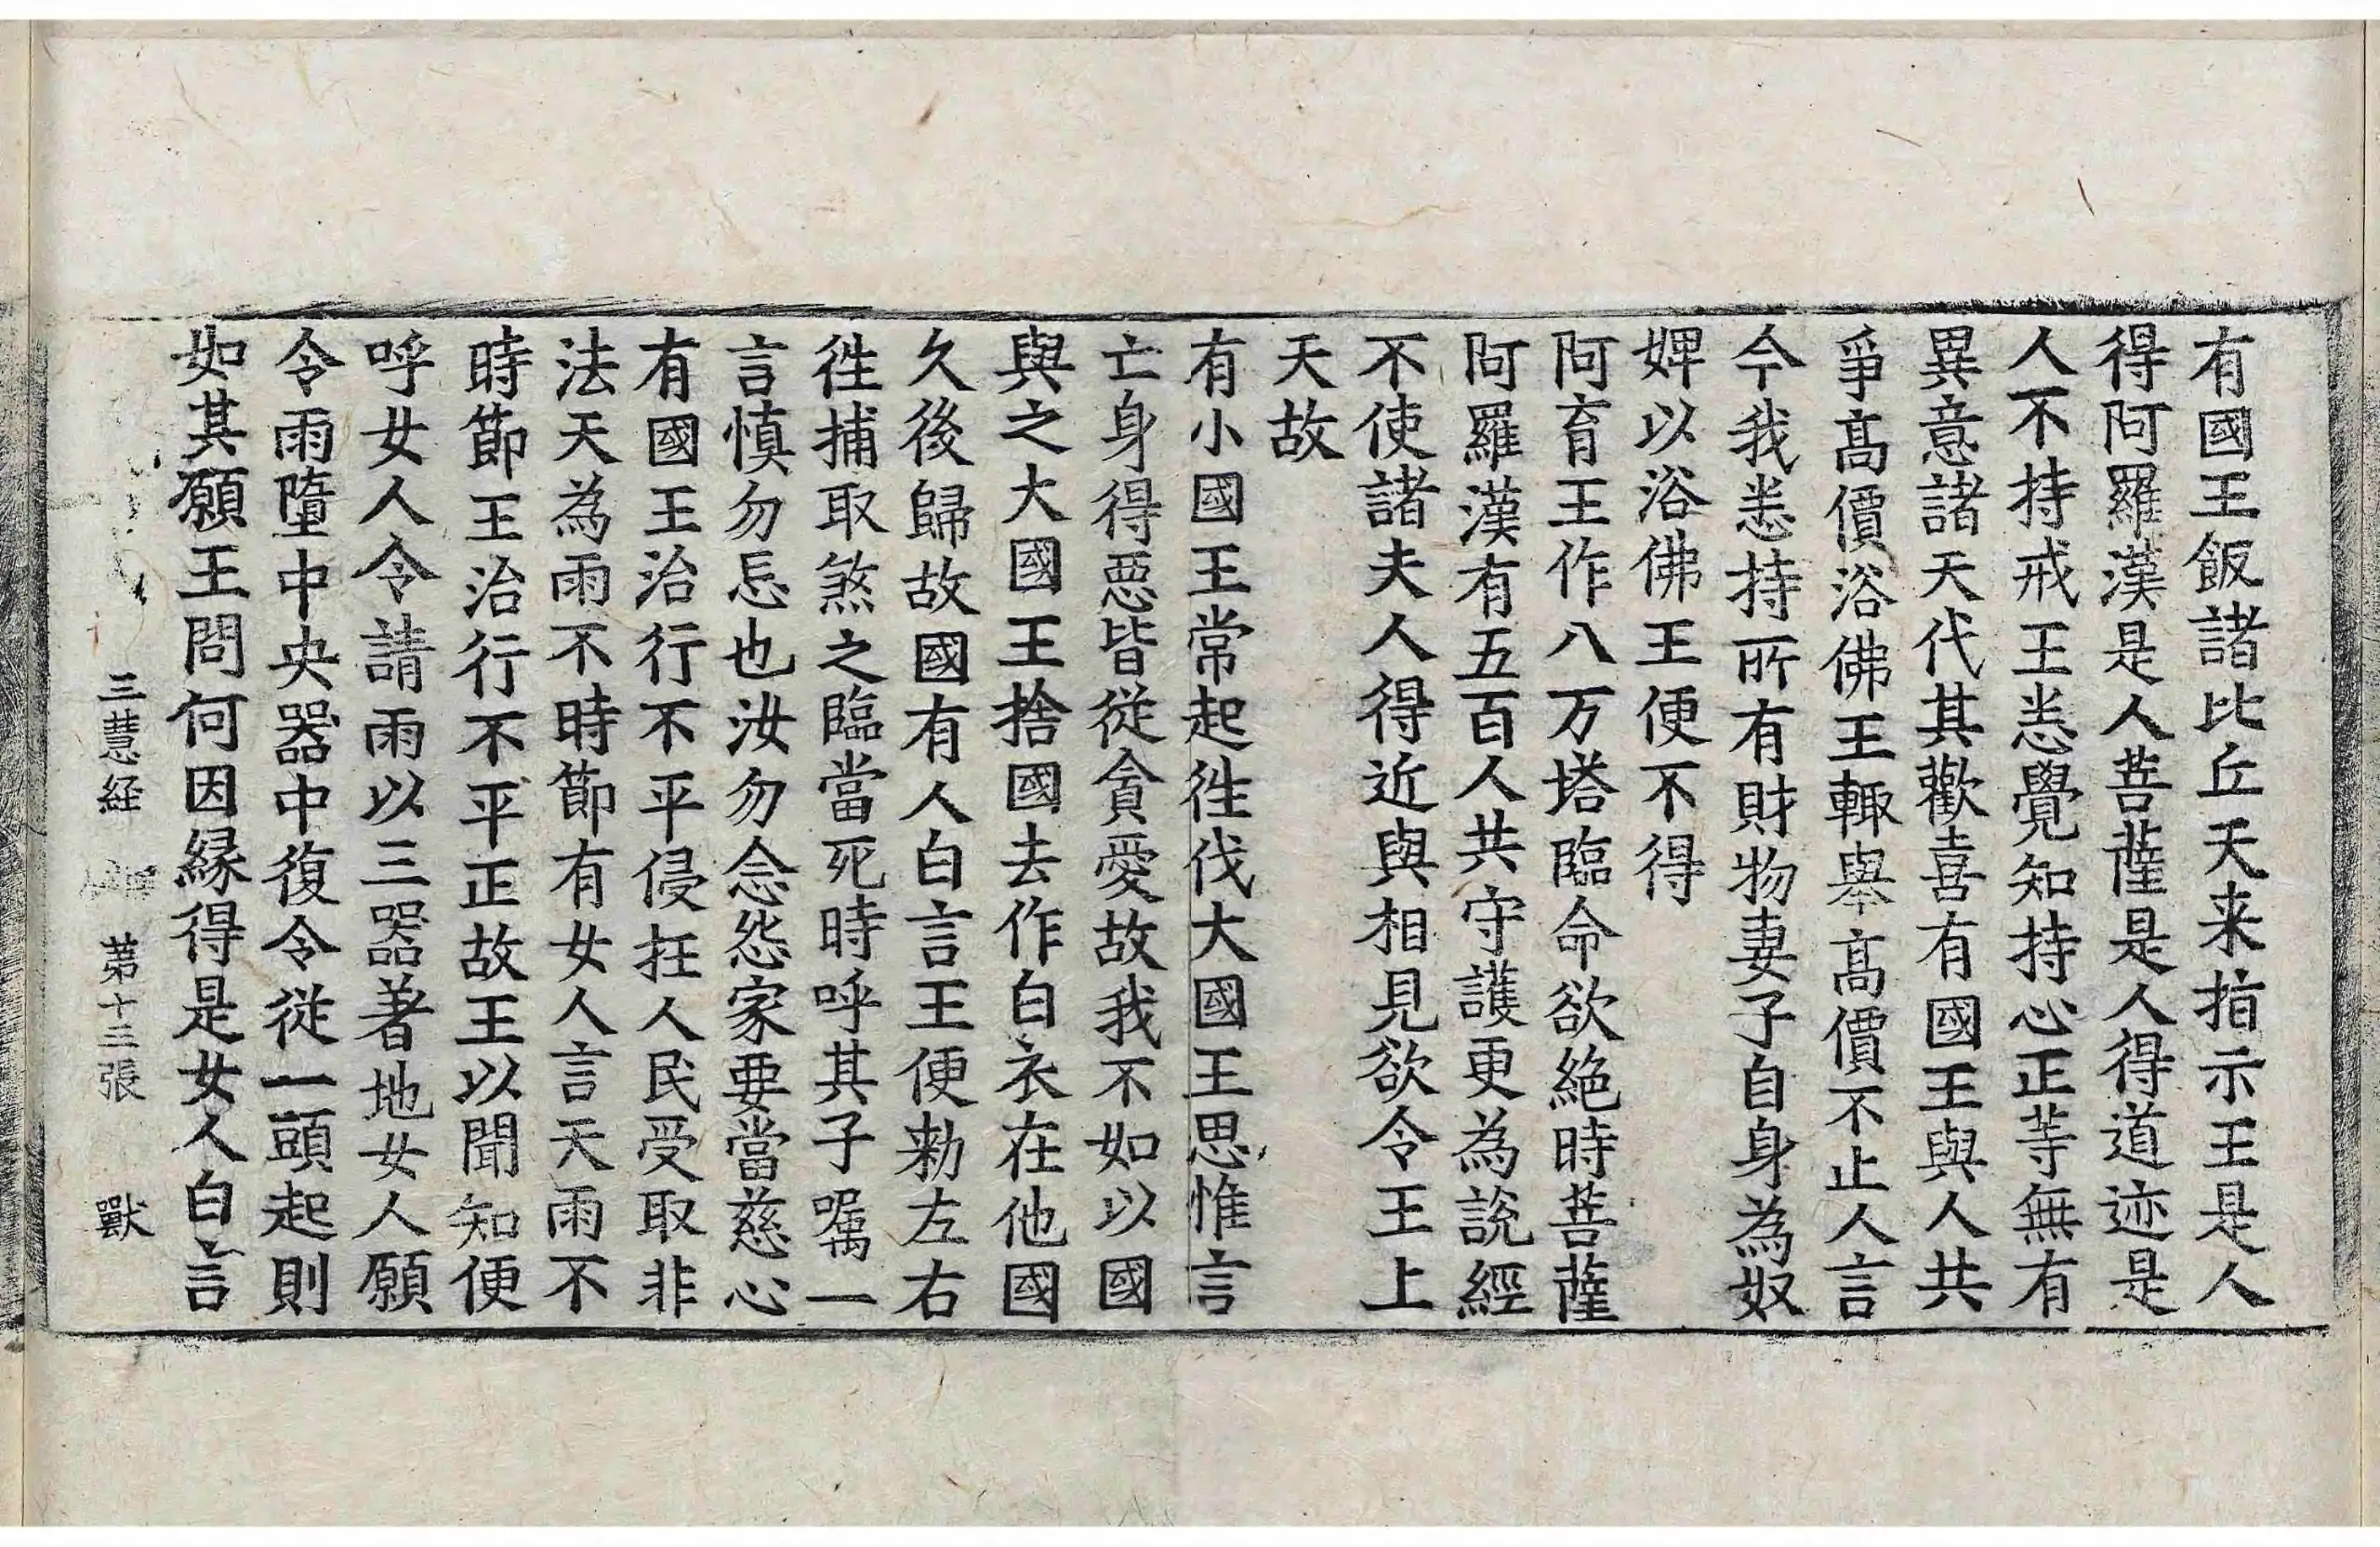 有國王飯諸比丘天来指示王是人
得阿羅漢是人菩薩是人得道迹是
人不持戒王悉覺知持心正等無有
異意諸天代其歡喜有國王與人共
爭髙價浴佛王輙舉髙價不止人言
今我悉持所有財物妻子自身為奴
婢以浴佛王便不得
阿育王作八万塔臨命欲絶時菩薩
阿羅漢有五百人共守護更為說經
不使諸夫人得近與相見欲令王上
天故
有小國王常起徃伐大國王思惟言
亡身得惡皆從貪愛故我不如以國
與之大國王捨國去作白衣在他國
久後歸故國有人白言王便勑左右
徃捕取煞之臨當死時呼其子囑一
言慎勿忘也汝勿念怨家要當慈心
有國王治行不平侵抂人民受取非
法天為雨不時節有女人言天雨不
時節王治行不平正故王以聞知便
呼女人令請雨以三器著地女人願
令雨墮中央器中復令從一頭起則
如其願王問何因縁得是女人白言
三慧経 第十三張 獸